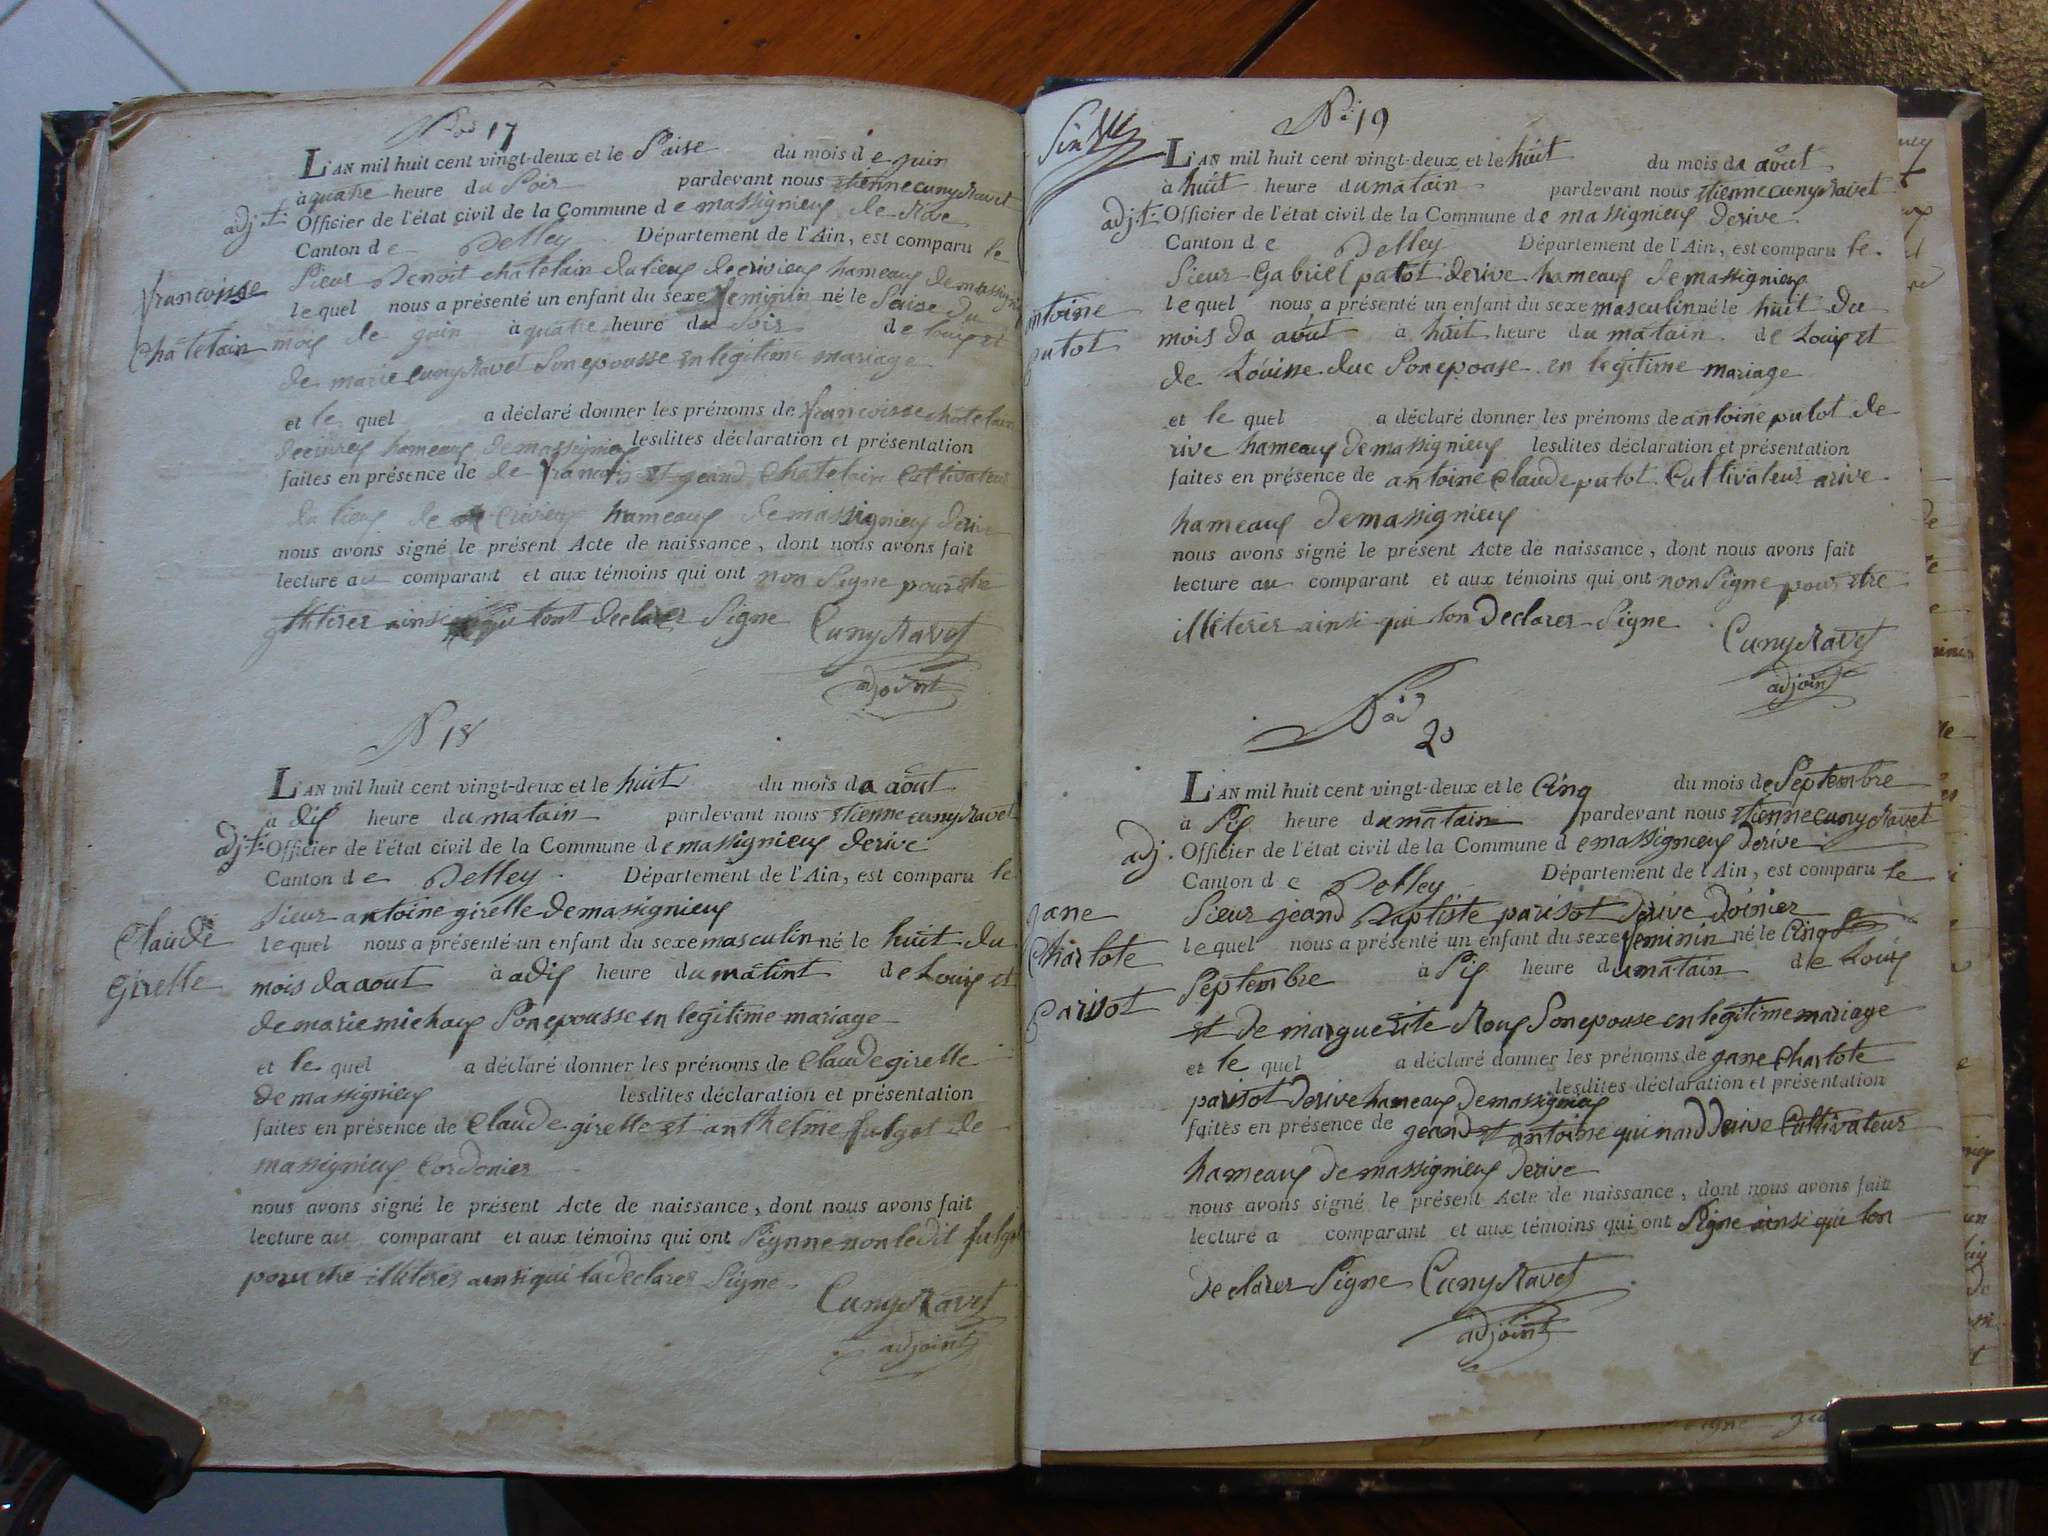 N.os 17
L'AN mil huit cent vingt-deux et le Saise du mois de juin
à quatre heure du Soir pardevant nous Etienne Cuny Ravet
adj.t: Officier de l'état civil de la Commune de massignieux de Rive
Canton de Belley Département de l'Ain, est comparu le
françoisse Chatelain
Sieur Benoit chatelain du lieux de crivieux hameaux de massignieux
lequel nous a présenté un enfant du sexe feminin né le Saise du
mois de juin à quatre heure du Soir de louis et
de marie Cuny Ravet Son epousse en legitime mariage
et le quel a déclaré donner les prénoms de françoisse chatelain
hameaux de massignieux lesdites déclaration et présentation
faites en présence de de francois et jeand Chatelain Cultivateur
du lieux de Crivieux hameaux de massignieux de rive
nous avons signé le présent Acte de naissance, dont nous avons fait
lecture au comparant et aux témoins qui ont non Signe pour etre
illiterer ainsi qui lont declarer Signe Cuny Ravet
adjoint
N 18
L'AN mil huit cent vingt-deux et le huit du mois da août
a dix heure du matain pardevant nous Etienne Cuny Ravet
adj.t: Officier de l'état civil de la Commune de massignieux de rive
Canton de Belley Département de l'Ain, est comparu le
Claude Girelle
Sieur antoine girelle de massignieux
lequel nous a présenté un enfant du sexe masculin né le huit du
mois da aout à adix heure du matint de Louis et
de marie michaux Son epousse en legitime mariage
et le quel a déclaré donner les prénoms de Claude girelle
de massignieux lesdites déclaration et présentation
faites en présence de Claude girelle et anthelme fulgot de
massignieux Cordonier
nous avons signé le présent Acte de naissance, dont nous avons fait
lecture au comparant et aux témoins qui ont Signne non ledit fulgot
pour etre illiterer ainsi qui la declarer Signe Cuny Ravet
adjoint
N.o 19
L'AN mil huit cent vingt-deux et le huit du mois da août
à huit heure du matain pardevant nous Etienne Cuny Ravet
adj.t: Officier de l'état civil de la Commune de massignieux de rive
Canton de Belley Département de l'Ain, est comparu le
Sieur Gabriel putot de rive hameaux de massignieux
antoine putot
lequel nous a présenté un enfant du sexe masculin né le huit du
mois da août à huit heure du matain de Louis et
de Louisse duc Son epouse en legitime mariage
et le quel a déclaré donner les prénoms de antoine putot de
rive hameaux de massignieux lesdites déclaration et présentation
faites en présence de antoine Claude putot Cultivateur a rive
hameaux de massignieux
nous avons signé le présent Acte de naissance, dont nous avons fait
lecture au comparant et aux témoins qui ont non Signe pour etre
illiterer ainsi qui lon Declarer Signe Cuny Ravet
adjoint
N.os 20
L'AN mil huit cent vingt-deux et le Cinq du mois de Septembre
à Six heure du matain pardevant nous Etienne Cuny Ravet
adj. Officier de l'état civil de la Commune de massignieux de rive
Canton de Belley Département de l'Ain, est comparu le
jane Charlote parisot
Sieur jeand Baptiste parisot de rive doinier
lequel nous a présenté un enfant du sexe feminin né le Cinq de
Septembre à Six heure du matain de Louis
et de marguerite Roux Son epouse en legitime mariage
et le quel a déclaré donner les prénoms de jane Charlote
parisot de rive hameaux de massignieux lesdites déclaration et présentation
faites en présence de jeand et antoine quinard de rive Cultivateur
hameaux de massignieux de rive
nous avons signé le présent Acte de naissance, dont nous avons fait
lecture a comparant et aux témoins qui ont Signe ainsi qui lon
declarer Signe Cuny Ravet
adjoint